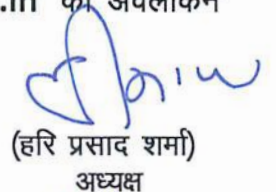 .in का अवलोकन
(हरि प्रसाद शर्मा)
अध्यक्ष